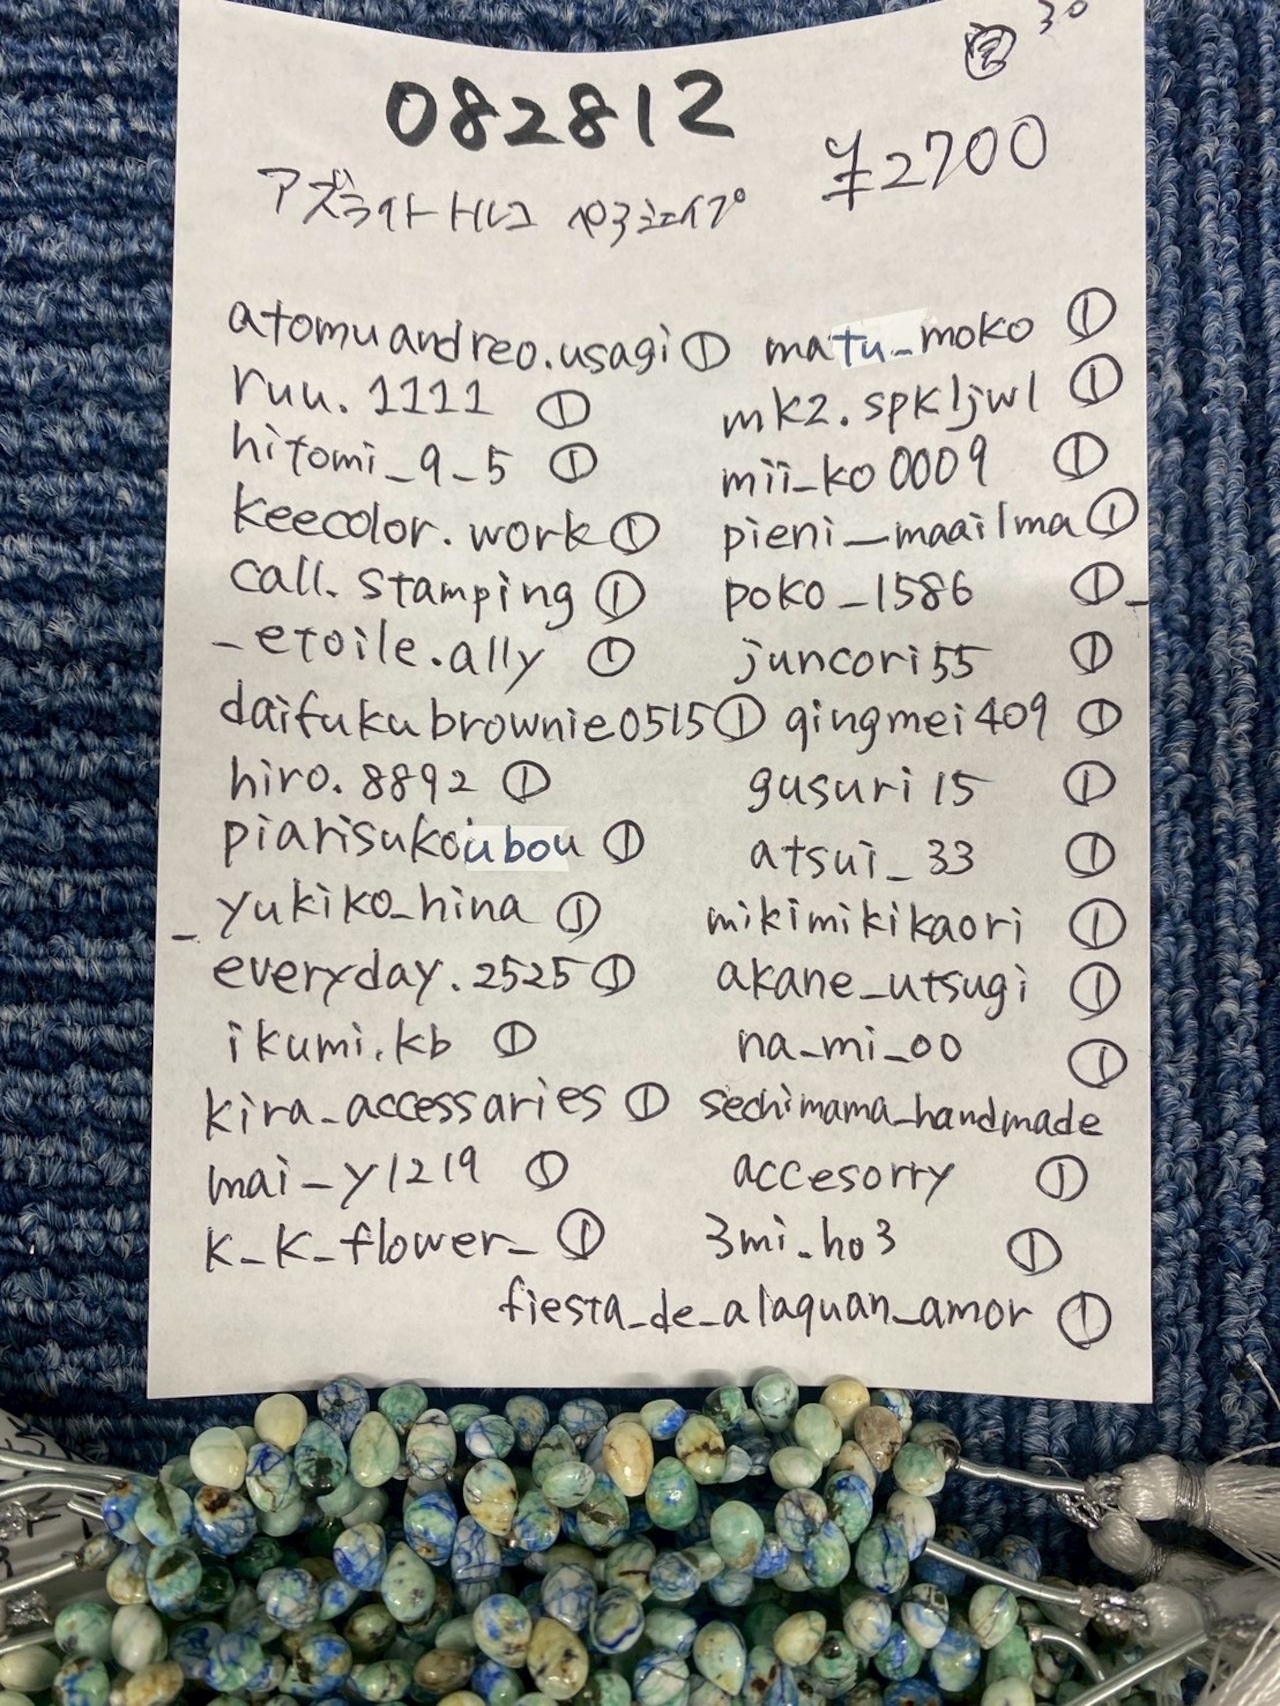 30
082812
¥2700
アズライトトルコ ペアシェイプ
atomuandreo.usagi ①
ruu.1111 ①
hitomi_9_5 ①
keecolor.work ①
call.stamping ①
_etoile.ally ①
daifukubrownie0515 ①
hiro.8892 ①
piarisukoubou ①
_yukiko_hina ①
everyday.2525 ①
ikumi.kb ①
kira_accessaries ①
mai_y1219 ①
k_k_flower_ ①
matu_moko ①
mk2.spkljwl ①
mii_ko0009 ①
pieni_maailma ①
poko_1586 ①_
juncori55 ①
qingmei409 ①
gusuri15 ①
atsui_33 ①
mikimikikaori ①
akane_utsugi ①
na_mi_oo ①
sechimama_handmade
accesorry ①
3mi_ho3 ①
fiesta_de_alaquan_amor ①